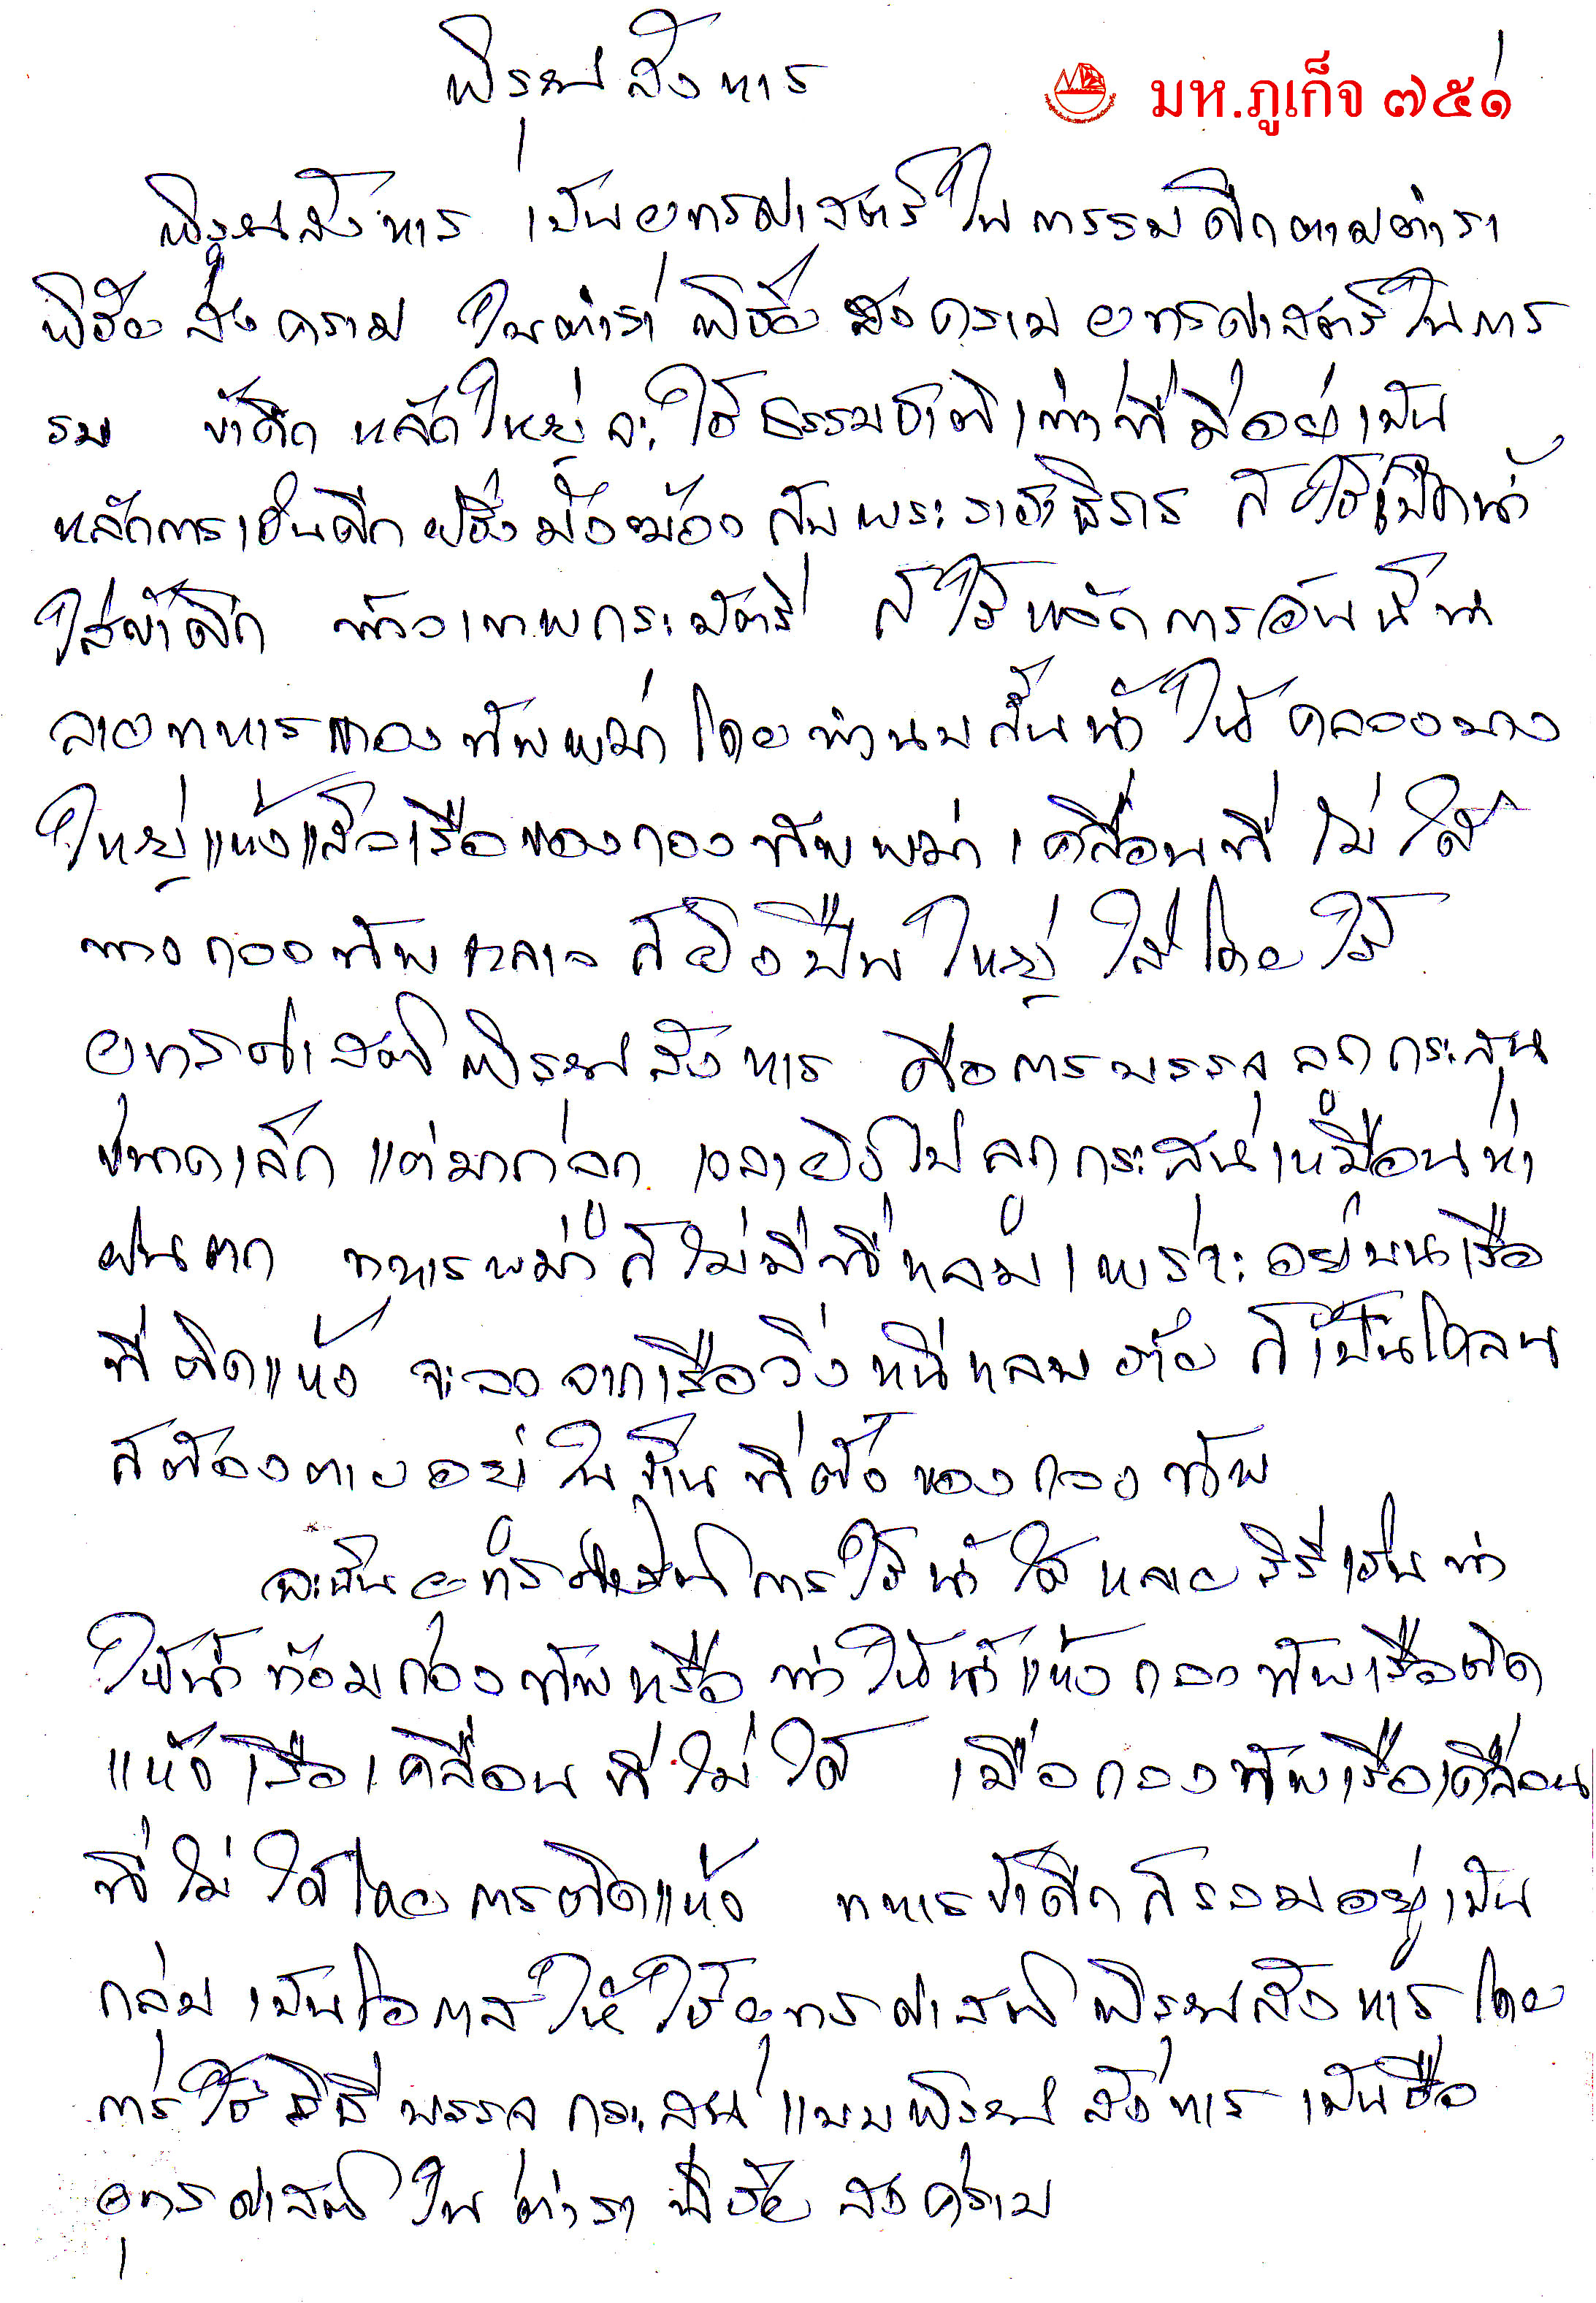 พิรุฬสังหาร
มห.ภูเก็จ ๗๕๑
พิรุฬสังหาร เป็นยุทธศาสตร์ในการรบศึกตามตำรา
พิชัยสงคราม ในตำราพิชัยสงครามยุทธศาสตร์ในการ
รบ ข้าศึก หลักใหญ่จะใช้ธรรมชาติเท่าที่มีอยู่เป็น
หลักการเช่นศึก ฝรั่งมังฆ้อง กับพระราชาธิราช ก็ใช้เปิดน้ำ
ใส่ข้าศึก ท้าวเทพกระษัตรี ก็ใช้หลักการอันนี้ทำ
ลายทหารกองทัพพม่าโดยทำนบกั้นน้ำให้คลองบาง
ใหญ่แห้งแล้วเรือของกองทัพพม่าเคลื่อนที่ไม่ได้
ทางกองทัพถลาง ก็ยิงปืนใหญ่ใส่โดยใช้
ยุทธศาสตร์พิรุฬสังหาร คือการบรรจุลูกกระสุน
ขนาดเล็กแต่มากลูก เวลายิงไปลูกกระสุนเหมือนห่า
ฝนตก ทหารพม่าก็ไม่มีที่หลบเพราะอยู่บนเรือ
ที่ติดแห้ง จะลงจากเรือวิ่งหนีหลบภัย ก็เป็นโคลน
ก็ต้องตายอยู่ในที่ตั้งของกองทัพ
ฉะนั้นยุทธศาสตร์การใช้น้ำใช้หลายวิธีเช่นทำ
ให้น้ำท่วมกองทัพหรือทำให้น้ำแห้งกองทัพเรือติด
แห้งเรือเคลื่อนที่ไม่ได้ เมื่อกองทัพเรือเคลื่อน
ที่ไม่ได้โดยการติดแห้ง ทหารข้าศึกก็รวมอยู่เป็น
กลุ่มเป็นโอกาสให้ใช้ยุทธศาสตร์พิรุฬสังหารโดย
การใช้วิธีบรรจุกระสุนแบบพิรุฬสังหาร เป็นชื่อ
ยุทธศาสตร์ในตำราพิชัยสงคราม